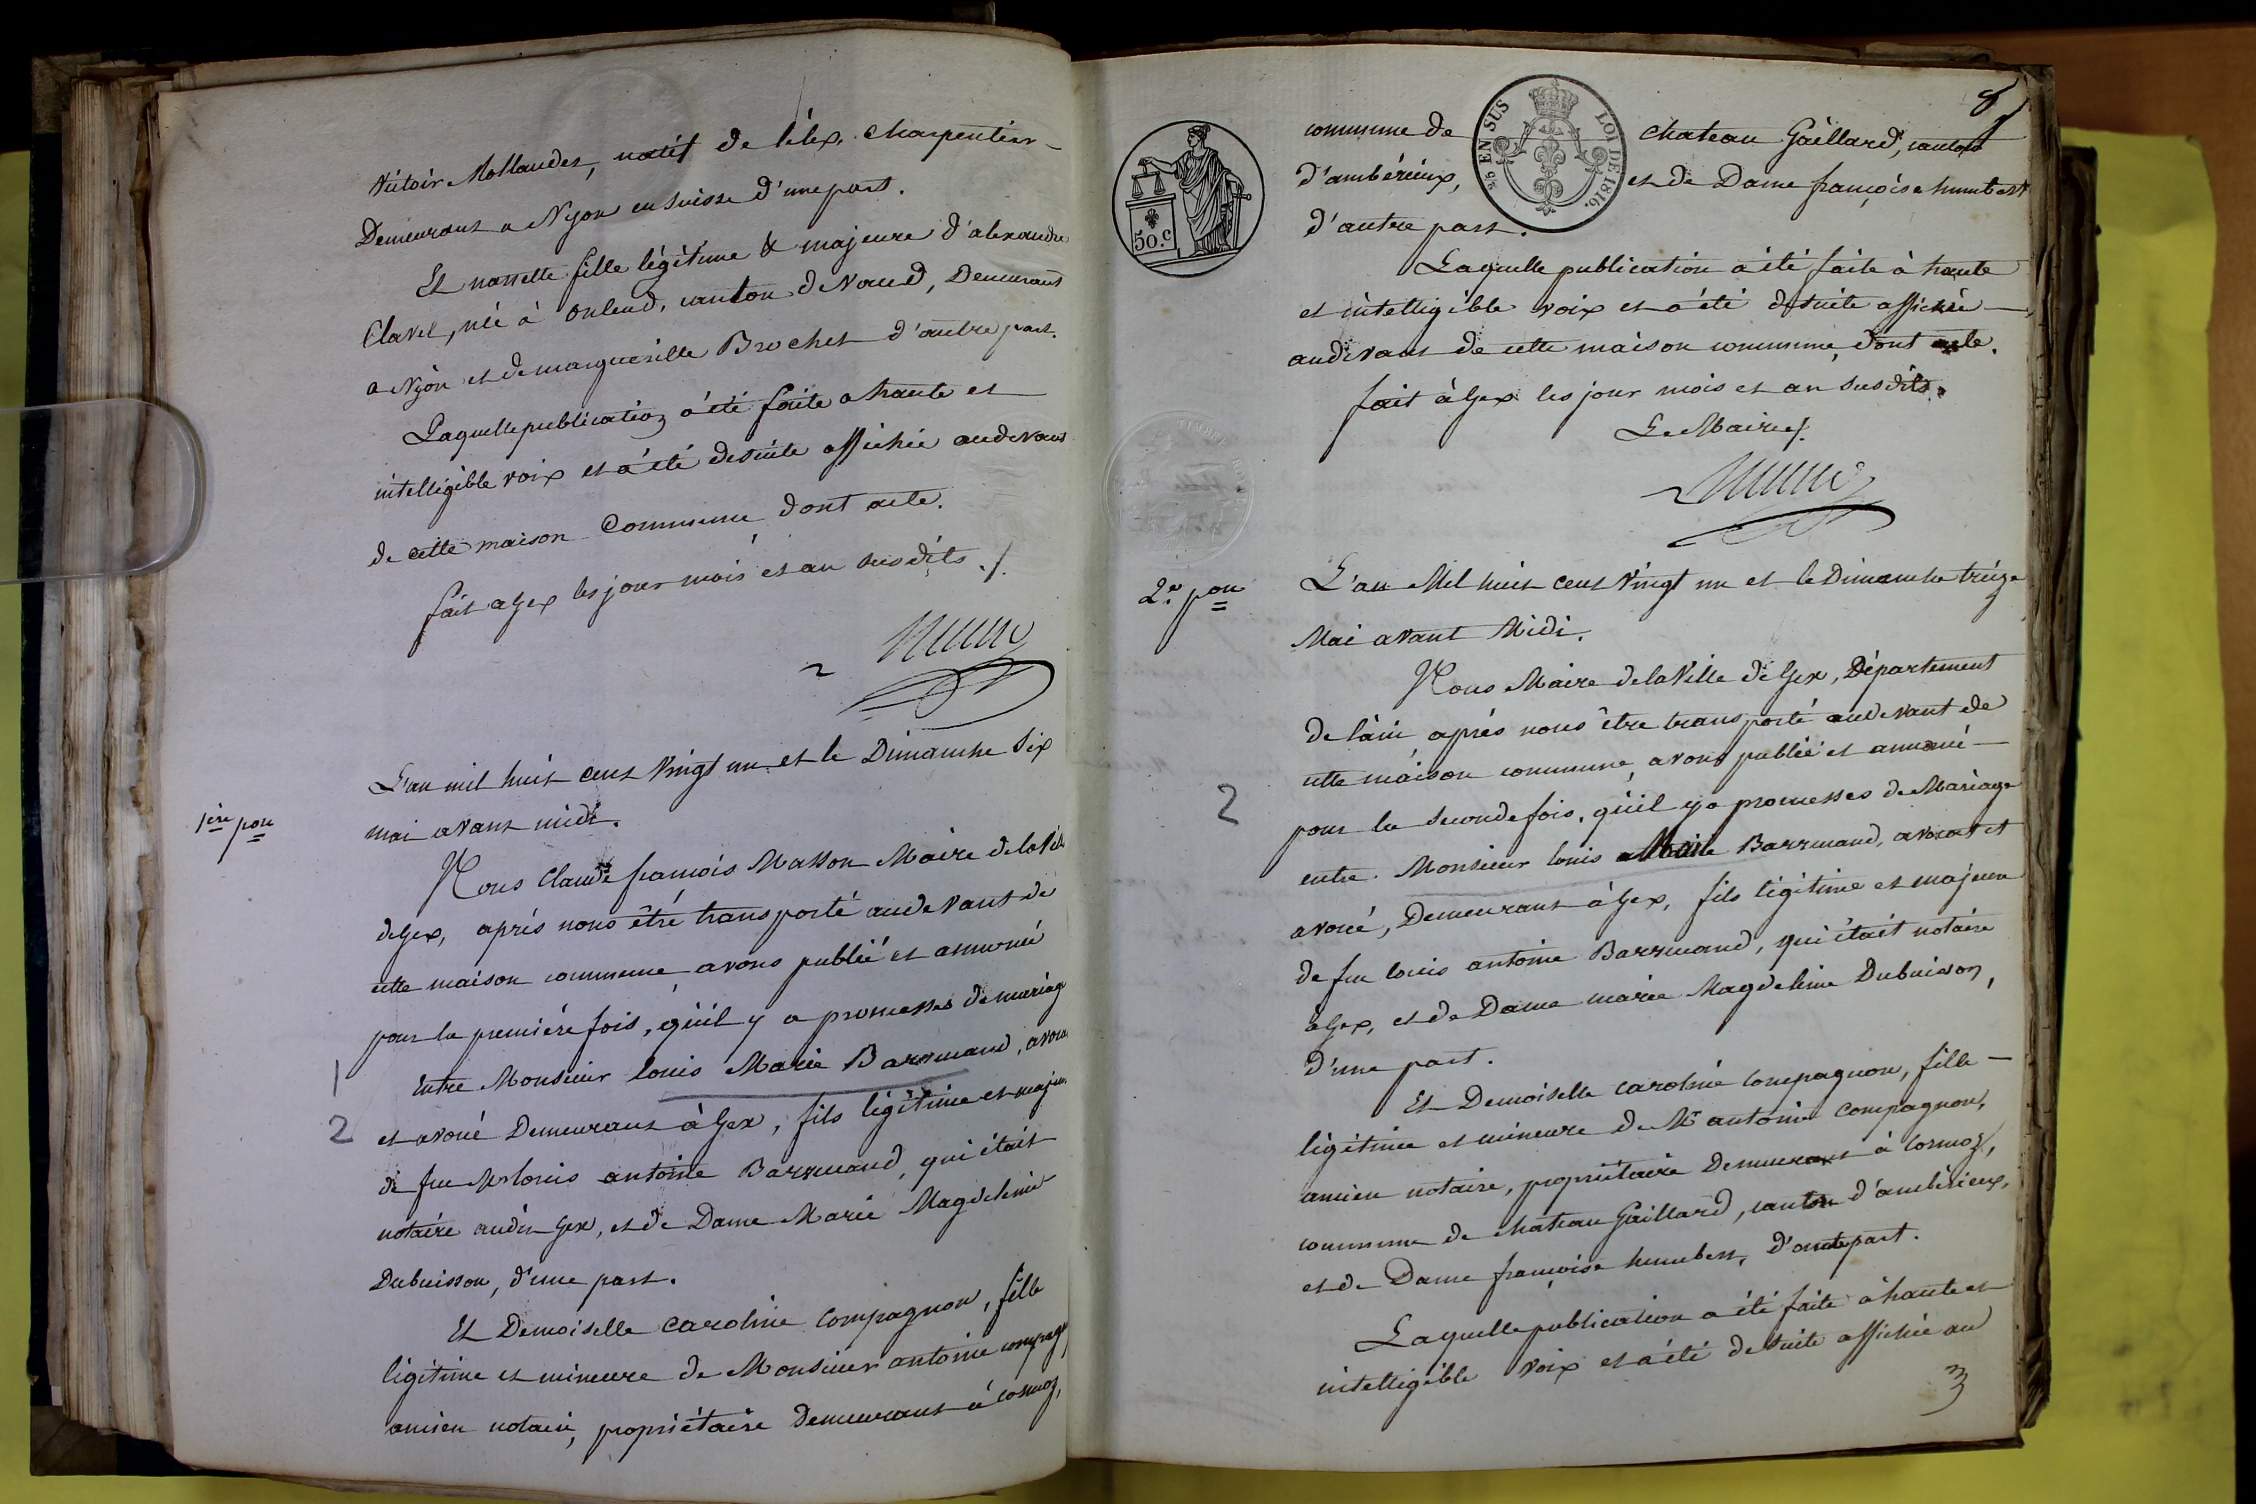 Victoir Mollandes, natif de Gex, charpentier
Demeurant a Nyon en Suisse d'une part.
Et nanette fille légitime & majeure d'alexandre
Clavel, née à onlend, canton de Vaud, Demeurant
a Nyon et de marguerille Brochet d'autre part.
Laquelle publication a été faite a haute et
intelligible voix et a été desuite affichée audevant
de cette maison Commune dont acte.
fait a Gex les jour mois et an susdits ./.
L'an mil huit cent Vingt un et le Dimanche Six
1ère pon
mai avant midi.
Nous Claude françois Masson Maire de la Ville
de Gex, après nous être transporté audevant de
cette maison commune avons publié et annoncé
pour la première fois, qu'il y a promesses de mariage
1
Entre Monsieur louis Marie Barrmand, avocat
2
et avoué Demeurant à Gex, fils légitime et majeur
de feu Mr louis antoine Barrmand, qui était
notaire audit Gex, et de Dame Marie Magdeleine
Dubuisson, d'une part.
Et Demoiselle caroline Compagnon, fille
légitime et mineure de Monsieur antoine compagnon
ancien notaire, propriétaire Demeurant à Cormoz,
8
commune de Chateau Gaillard, canton
d'ambérieux, et de Dame françoise humbert
d'autre part.
25 EN SUS LOI DE 1816.
50.c
Laquelle publication a été faite à haute
et intelligible voix et a été desuite affichée
audevant de cette maison commune, dont acte.
fait à Gex les jour mois et an susdits.
Le Maire ./.
2e pon
L'an Mil huit cent Vingt un et le Dimanche treize
Mai avant Midi.
Nous Maire de la Ville de Gex, Département
de l'ain après nous être transporté audevant de
cette maison commune, avons publié et annoncé
2
pour la seconde fois, qu'il y a promesses de Mariage
entre Monsieur louis Marie Barrmand, avocat et
avoué, Demeurant à Gex, fils légitime et majeur
de feu louis antoine Barrmand, qui était notaire
à Gex, et de Dame marie Magdeleine Dubuisson,
d'une part.
Et Demoiselle caroline Compagnon, fille
légitime et mineure de Mr antoine Compagnon,
ancien notaire, propriétaire Demeurant à Cormoz,
commune de chateau Gaillard, canton d'ambérieux,
et de Dame françoise humbert, d'autre part.
Laquelle publication a été faite à haute et
intelligible voix et a été desuite affichée au
3